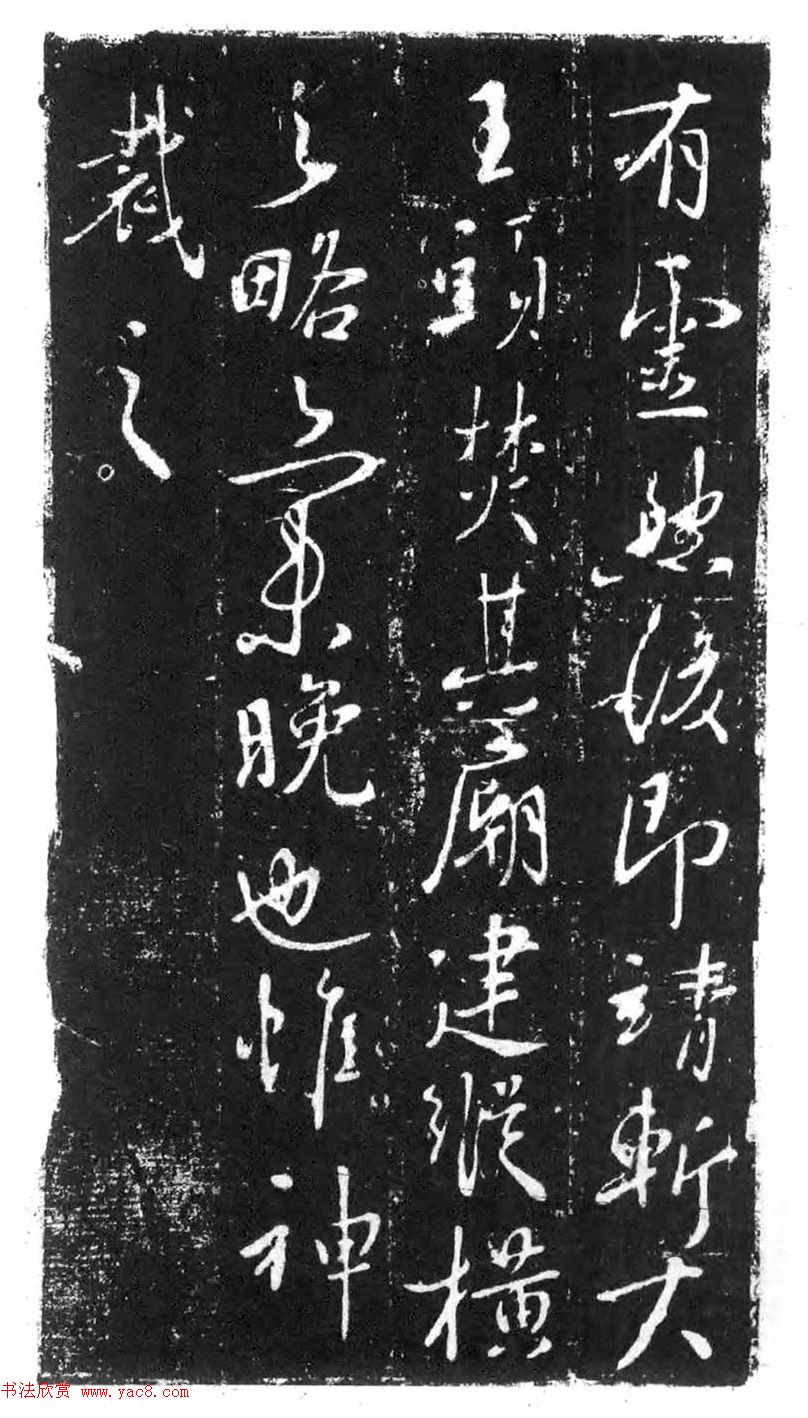 有靈然後即靖斬大
王頭焚其廟建縱橫
之略亦未晚也惟神
裁之
书法欣赏 www.yac8.com